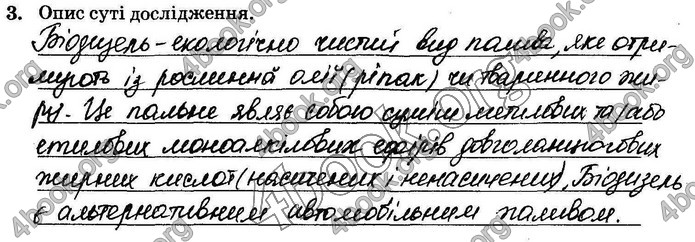 3. Опис суті дослідження.
Біодизель – екологічно чистий вид палива, яке отри-
мують із рослинної олії (ріпак) чи тваринного жи-
ру. Це пальне являє собою суміш метилових та/або
етилових моноалкілових ефірів довголанцюгових
жирних кислот (насичених ненасичених). Біодизель
є альтернативним автомобільним паливом.
4book.org